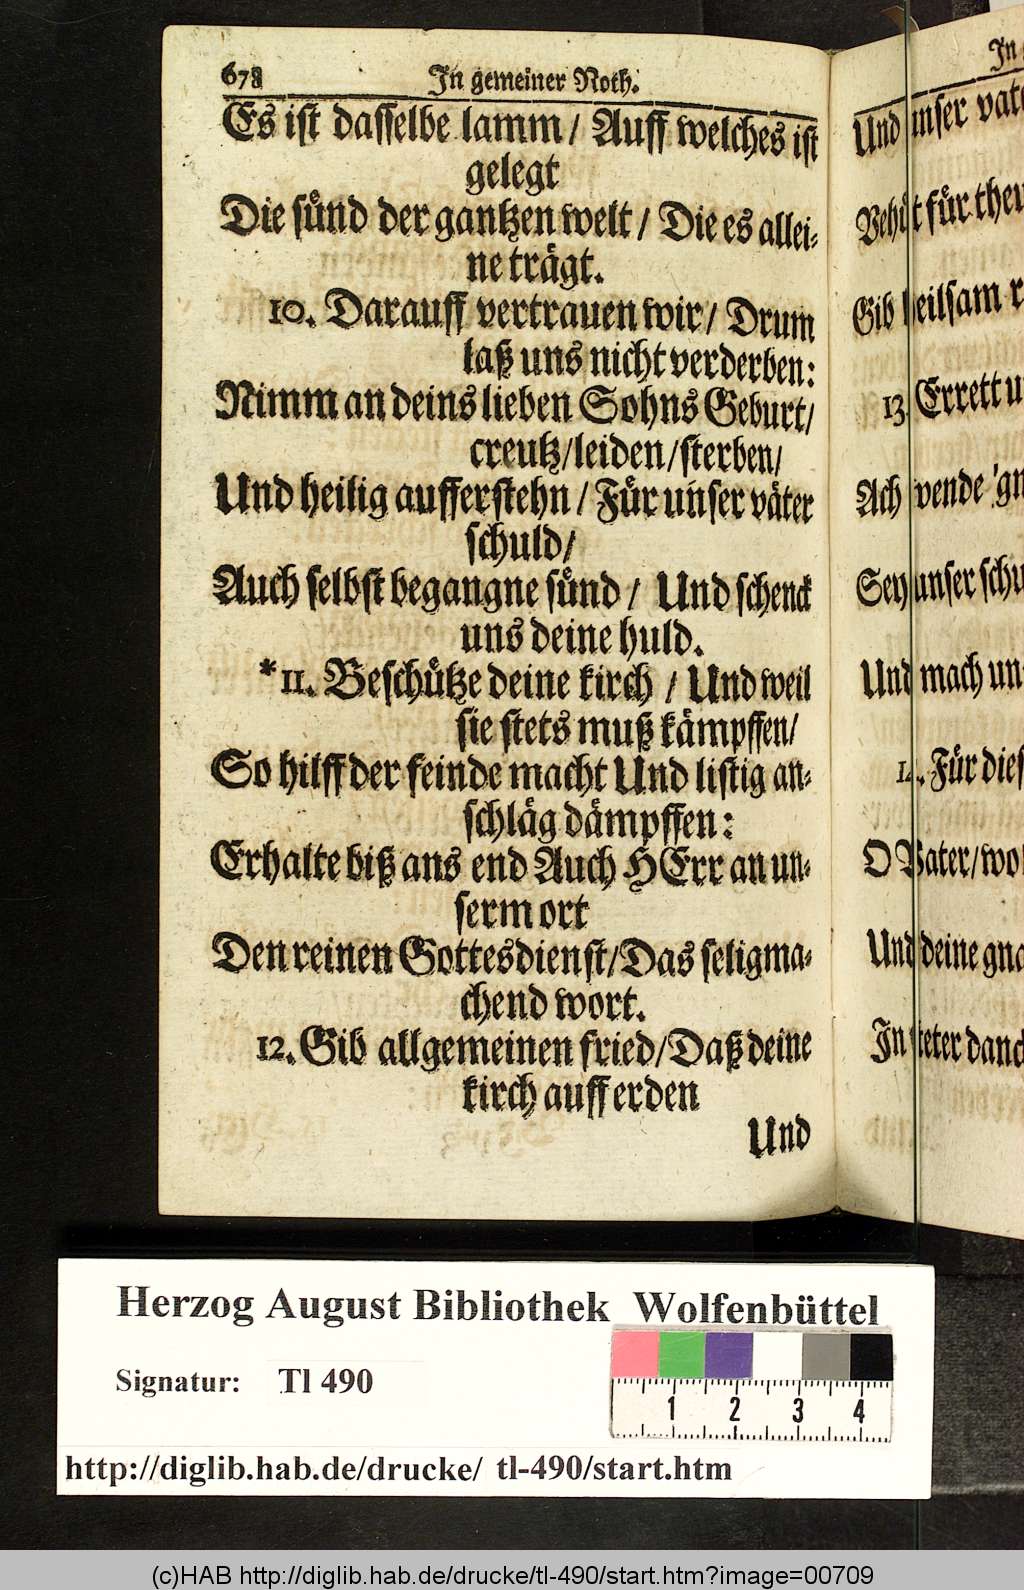 678 In gemeiner Noth.
Es ist dasselbe lamm / Auff welches ist
gelegt
Die sünd der gantzen welt / Die es allei-
ne trägt.
10. Darauff vertrauen wir / Drum
laß uns nicht verderben:
Nimm an deins lieben Sohns Geburt/
creutz/leiden/sterben/
Und heilig aufferstehn / Für unser väter
schuld/
Auch selbst begangne sünd / Und schenck
uns deine huld.
*11. Beschütze deine kirch / Und weil
sie stets muß kämpffen/
So hilff der feinde macht Und listig an-
schläg dämpffen:
Erhalte biß ans end Auch HErr an un-
serm ort
Den reinen Gottesdienst/Das seligma-
chend wort.
12. Gib allgemeinen fried/Daß deine
kirch auff erden
Und
In
Und unser
für
Gib
13. Errett
Ach
Sey unser
Und mach
Für
O Vater/
Und deine
In
Herzog August Bibliothek Wolfenbüttel
Signatur: Tl 490
1 2 3 4
http://diglib.hab.de/drucke/ tl-490/start.htm
(c)HAB http://diglib.hab.de/drucke/tl-490/start.htm?image=00709